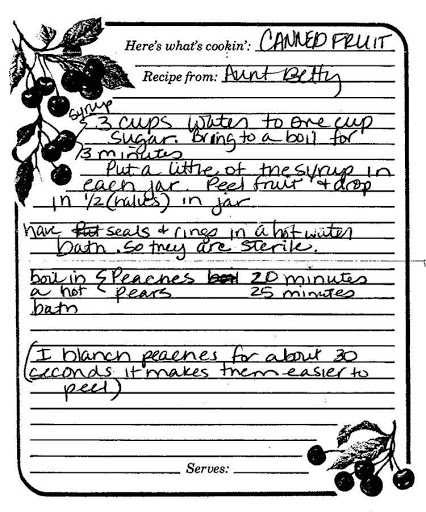 Here's what's cookin': CANNED FRUIT
Recipe from: Aunt Betty
syrup
3 cups water to one cup
sugar. Bring to a boil for
3 minutes
Put a little of the syrup in
each jar. Peel fruit & drop
in 1/2 (halves) in jar.
have seals & rings in a hot water
bath. so they are sterile.
boil in { Peaches 20 minutes
a hot { pears 25 minutes
bath
(I blanch peaches for about 30
seconds it makes them easier to
peel)
Serves: